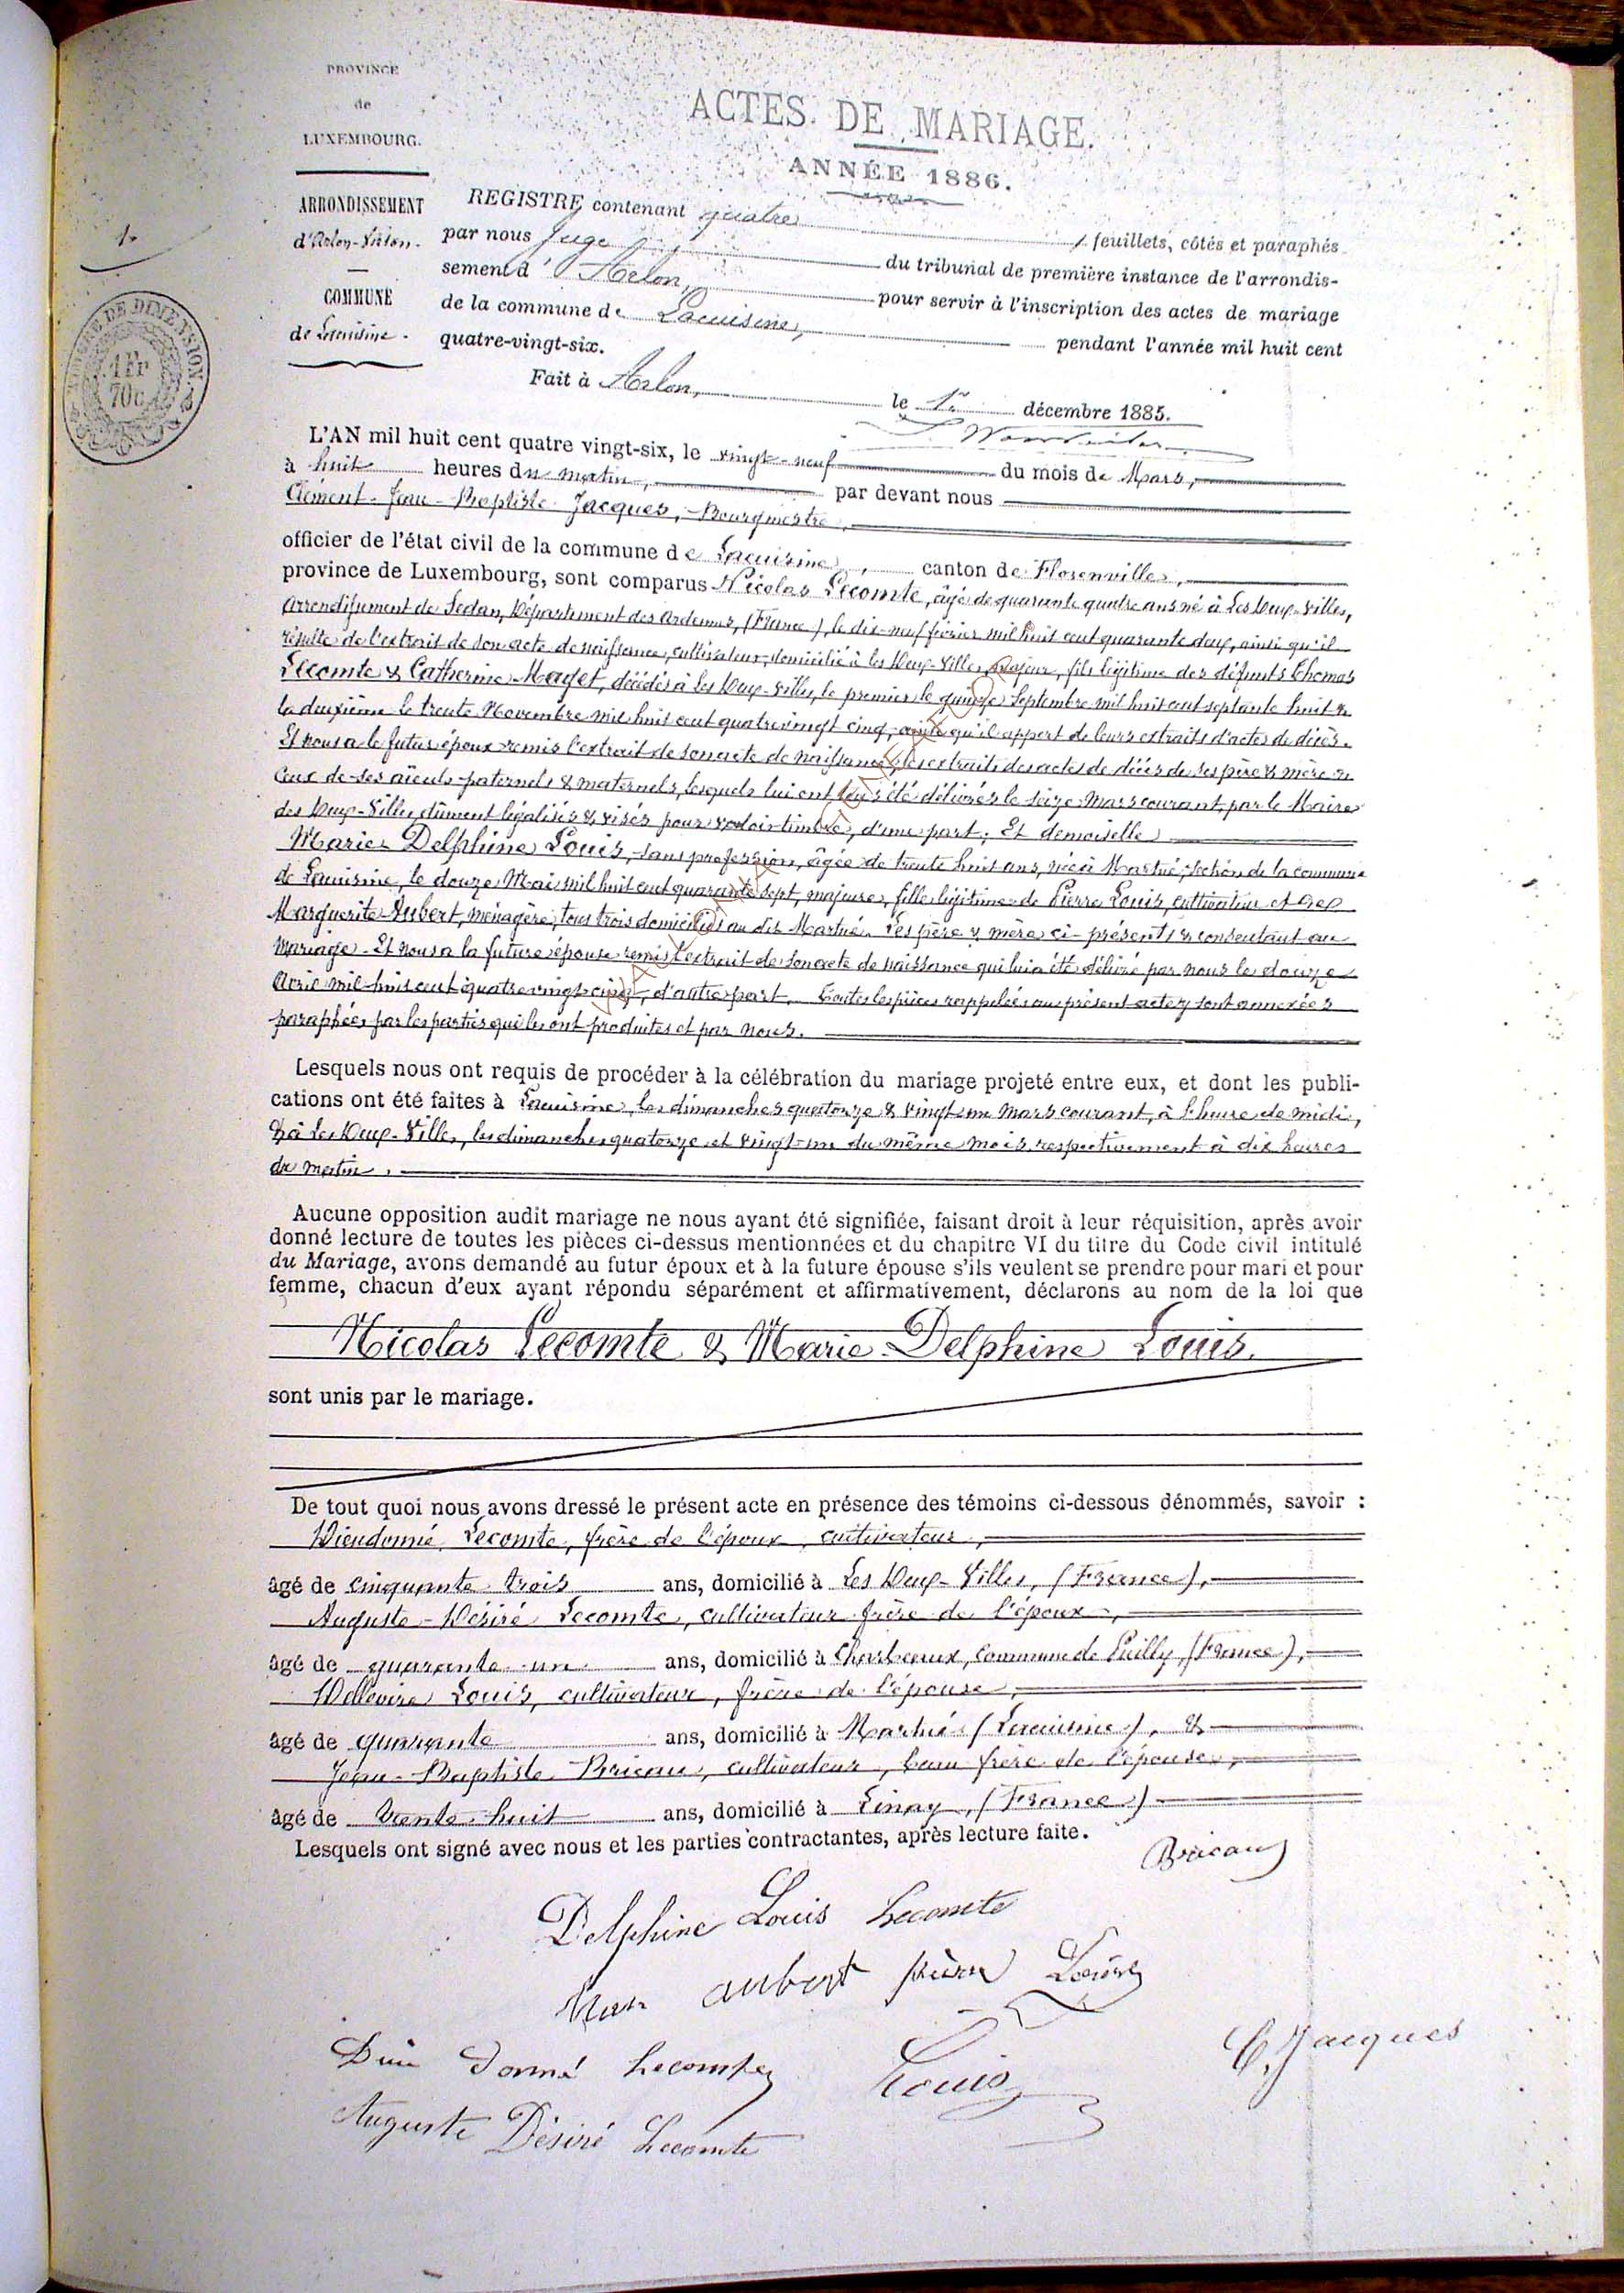 PROVINCE
de
LUXEMBOURG.
ARRONDISSEMENT
d'Arlon
COMMUNE
de Lacuisine.
1.
TIMBRE DE DIMENSION.
1 Fr
70c
ACTES DE MARIAGE.
ANNÉE 1886.
REGISTRE contenant quatre feuillets, côtés et paraphés
par nous Juge du tribunal de première instance de l'arrondis-
sement d'Arlon, pour servir à l'inscription des actes de mariage
de la commune de Lacuisine, pendant l'année mil huit cent
quatre-vingt-six.
Fait à Arlon, le 1er décembre 1885.
L'AN mil huit cent quatre vingt-six, le vingt-neuf du mois de Mars,
à huit heures du matin, par devant nous
Clément-Jean-Baptiste Jacques, Bourgmestre,
officier de l'état civil de la commune de Lacuisine, canton de Florenville,
province de Luxembourg, sont comparus Nicolas Lecomte, âgé de quarante quatre ans né à Les Deux-Villes,
arrondissement de Sedan, Département des Ardennes, (France), le dix-neuf février mil huit cent quarante deux, ainsi qu'il
résulte de l'extrait de son acte de naissance, cultivateur, domicilié à Les Deux-Villes, majeur, fils légitime des défunts Thomas
Lecomte & Catherine Maget, décédés à Les Deux-Villes, le premier le quinze Septembre mil huit cent septante huit &
la deuxième le trente Novembre mil huit cent quatre vingt cinq, ainsi qu'il appert de leurs extraits d'actes de décès.
Et nous a le futur époux remis l'extrait de son acte de naissance, les extraits des actes de décès de ses père & mère &
ceux de ses aïeuls paternels & maternels, lesquels lui ont tous été délivrés le seize Mars courant, par le Maire
des Deux-Villes, dûment légalisés & visés pour valoir timbre, d'une part; Et demoiselle
Marie-Delphine Louis, sans profession, âgée de trente huit ans, née à Martué, section de la commune
de Lacuisine, le douze Mai mil huit cent quarante sept, majeure, fille légitime de Pierre Louis, cultivateur et de
Marguerite Aubert, ménagère, tous trois domiciliés au dit Martué. Les père & mère ci-présents & consentant au
mariage. Et nous a la future épouse remis l'extrait de son acte de naissance qui lui a été délivré par nous le douze
Avril mil huit cent quatre vingt cinq, d'autre part. Toutes les pièces rappelées au présent acte y sont annexées
paraphées par les parties qui les ont produites et par nous.
Lesquels nous ont requis de procéder à la célébration du mariage projeté entre eux, et dont les publi-
cations ont été faites à Lacuisine, les dimanches quatorze & vingt un Mars courant, à l'heure de midi,
& à Les Deux-Villes, les dimanches quatorze et vingt-un du même mois, respectivement à dix heures
du matin.
Aucune opposition audit mariage ne nous ayant été signifiée, faisant droit à leur réquisition, après avoir
donné lecture de toutes les pièces ci-dessus mentionnées et du chapitre VI du titre du Code civil intitulé
du Mariage, avons demandé au futur époux et à la future épouse s'ils veulent se prendre pour mari et pour
femme, chacun d'eux ayant répondu séparément et affirmativement, déclarons au nom de la loi que
Nicolas Lecomte & Marie-Delphine Louis.
sont unis par le mariage.
De tout quoi nous avons dressé le présent acte en présence des témoins ci-dessous dénommés, savoir :
Dieudonné Lecomte, frère de l'époux, cultivateur,
âgé de cinquante trois ans, domicilié à Les Deux-Villes, (France),
Auguste-Désiré Lecomte, cultivateur frère de l'époux,
âgé de quarante-un ans, domicilié à Charbeaux, commune de Puilly, (France),
Louis, cultivateur, frère de l'épouse,
âgé de quarante ans, domicilié à Martué (Lacuisine), &
Jean-Baptiste Bricaux, cultivateur, beau frère de l'épouse,
âgé de trente-huit ans, domicilié à Linay, (France)
Lesquels ont signé avec nous et les parties contractantes, après lecture faite.
Bricaux
Delphine Louis Lecomte
aubert pierre Louis
Dieu donné Lecomte Louis C. Jacques
Auguste Désiré Lecomte